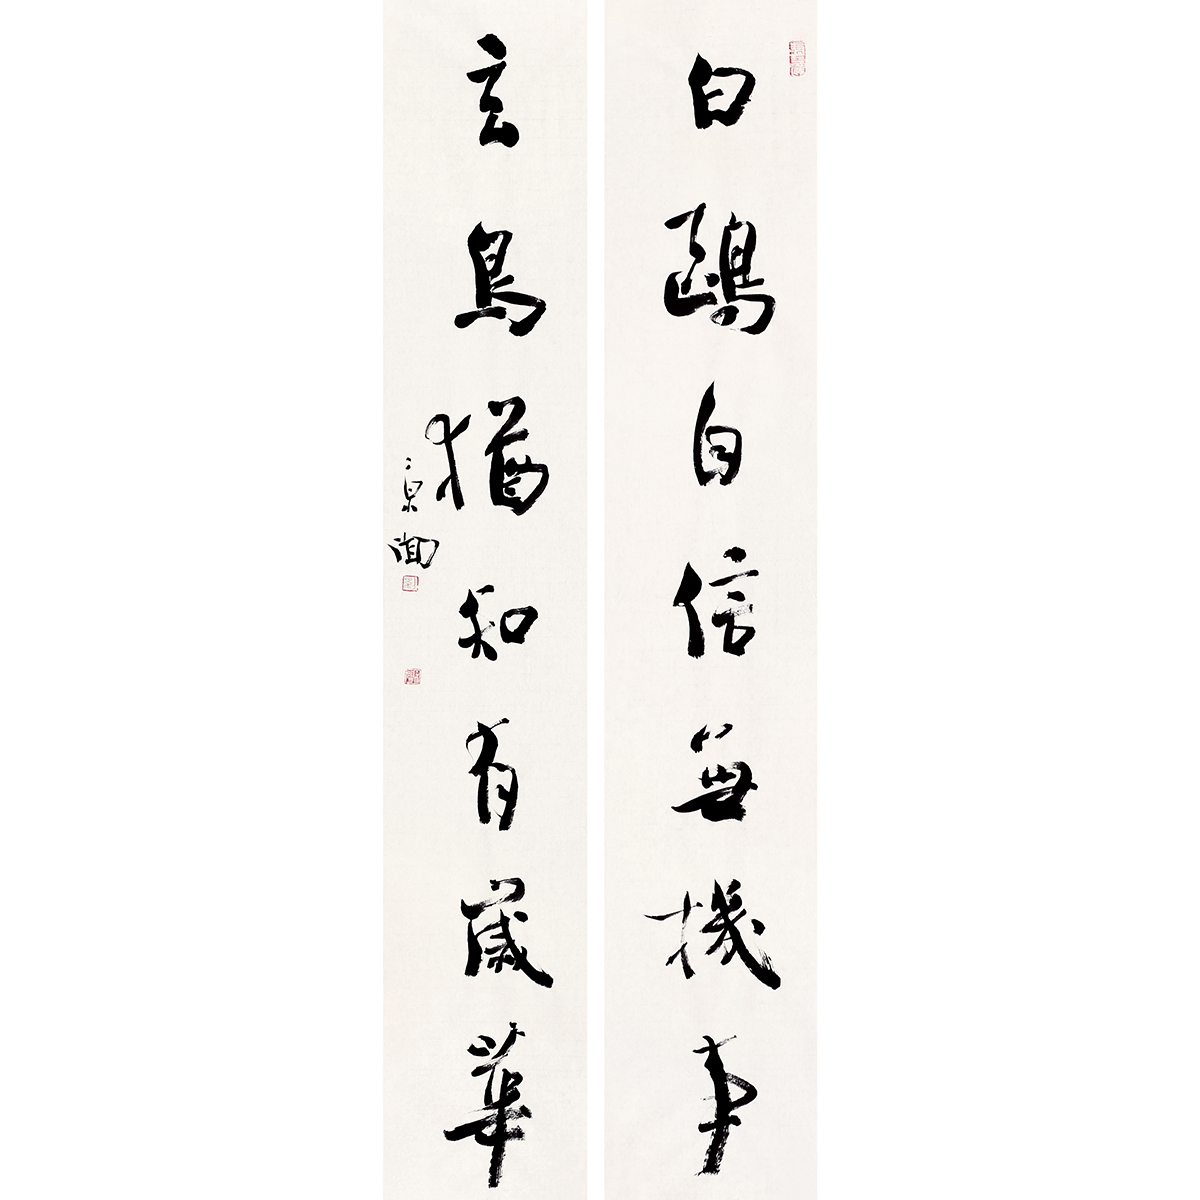 白鷗自信無機事
玄鳥猶知有歲華